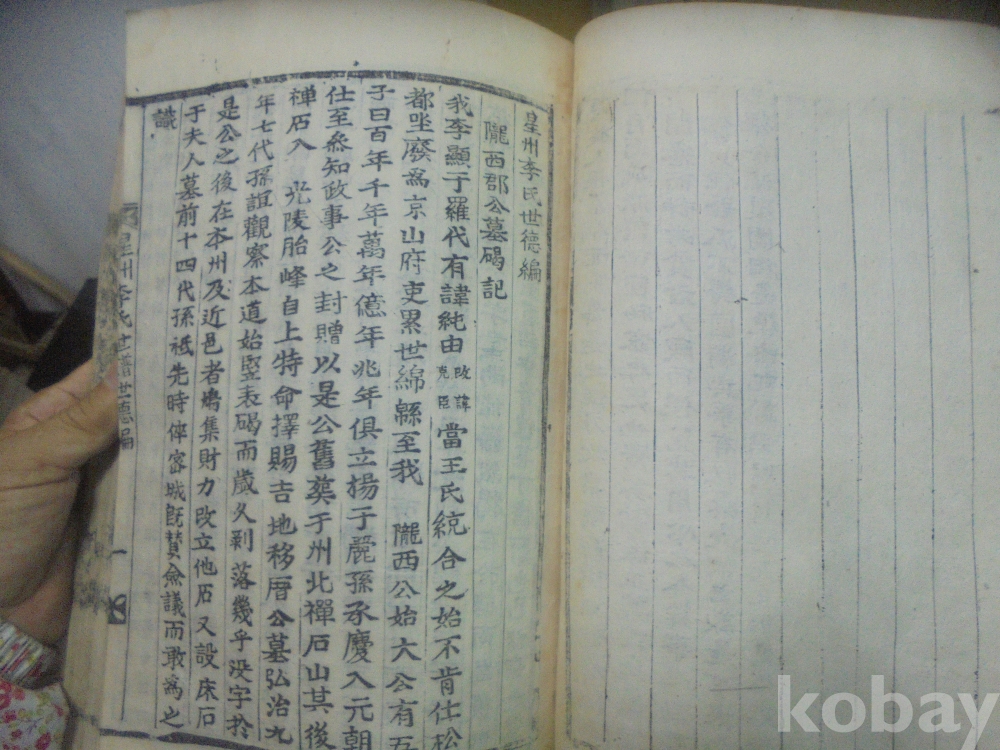 星州李氏世德編
隴西郡公墓碣記
我李顯于羅代有諱純由改諱克臣當王氏統合之始不肯仕松
都坐廢為京山府吏累世綿緜至我 隴西公始大公有五
子曰百年千年萬年億年兆年俱立揚于麗孫承慶入元朝
仕至叅知政事公之封贈以是公舊葬于州北禪石山其後
禪石入 光陵胎峰自上特命擇賜吉地移厝公墓弘治九
年七代孫誼觀察本道始竪表碣而歲久剥落幾乎没字於
是公之後在本州及近邑者鳩集財力改立他石又設床石
于夫人墓前十四代孫祗先時倅密城旣賛僉議而敢為之
識
星州李氏世譜世德編
一
kobay